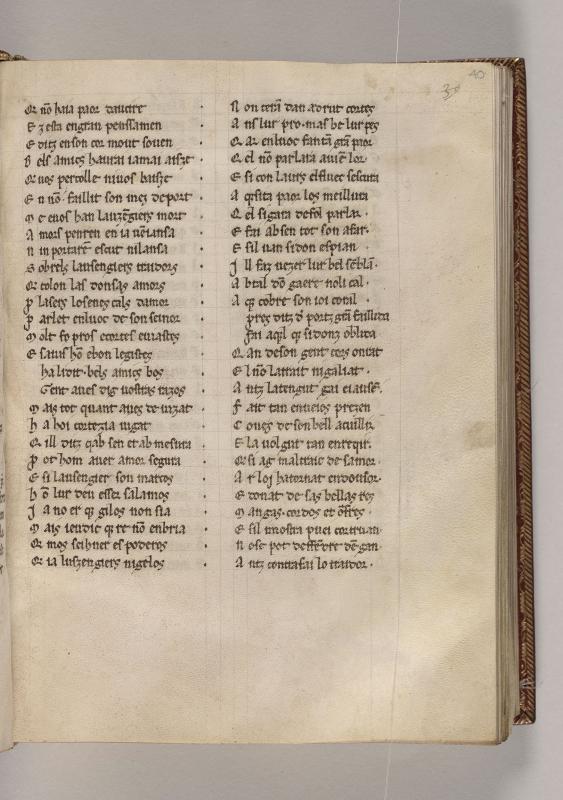 40
Q nō haia paor dauctre
E esta engran penssamen
E ditz enson cor mout souen
B els amics haurai iamai
Q uos percolle niuos baise
E n nō faillit son mei deport
M e enos han lauzēgiers mort
A mors penren en ia uēiansa
N in portarē escut nilansa
S obrels lausengiers traidors
Q colon las donsas amors
P lasers losenes cals damor
P arlet enluoc de son seinor
M olt fo pros ecortes
E sauis hō ebon legistes
ha li dit bels amics bos
Gent aues dig uostras razos
M ais tot quant aues deuizat
h a hoi cortezia uigat
Q ill ditz qab sen et ab mesura
P ot hom auer amor segura
E si lausengier son marcos
h ō lur deu esser salamos
I a no er q gilos non sia
M ais ieu dic q re nō enbria
Q mos seihner es poderos
Q ia luszengiers nigelos
N on cera dan adrut cortes
A ns lur pro mas be lur pes
Q ar enluoc fantā grā paor
Q el nō parlara auiē lor
E si con laurs esfuec
A qista paor los meillura
Q el sigara defol parlar
E fai absen tot son afar
E sil uan sidon espian
I ll faz uezer lur bel sēblā
A btal dō gaere noli cal
A q cobre son ioi coral
pres ditz
fai aqil q sidonz oblida
Q an deson gent cors onrat
E l nō larrait nigaliat
A utz latengut gai
F ait tan enueios prezen
C oues de sen bell acuillir
E la uolgut tan enreqir
Q si ag maltraic de samor
A r loi hatornat endousor
E donat de sas bellas res
M angas cordos et
E sil mostra puei
N ose pot deffēdre dēgan
A utz contrafai lo traidor